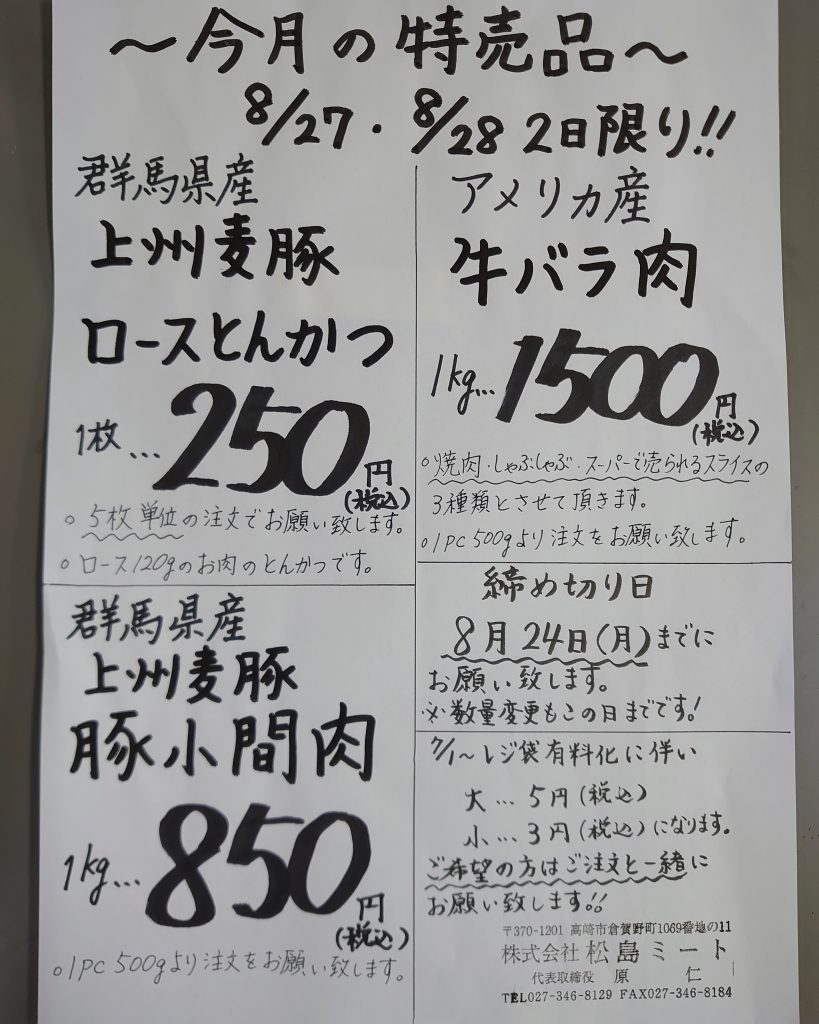 ～今月の特売品～
8/27・8/28 2日限り!!
群馬県産
上州麦豚
ロースとんかつ
1枚…250円
(税込)
○5枚単位の注文でお願い致します。
○ロース120gのお肉のとんかつです。
アメリカ産
牛バラ肉
1kg…1500円
(税込)
○焼肉・しゃぶしゃぶ・スーパーで売られるスライスの
3種類とさせて頂きます。
○1PC 500gより注文をお願い致します。
群馬県産
上州麦豚
豚小間肉
1kg…850円
(税込)
○1PC 500gより注文をお願い致します。
締め切り日
8月24日(月)までに
お願い致します。
※数量変更もこの日までです!
7/1～レジ袋有料化に伴い
大…5円(税込)
小…3円(税込)になります。
ご希望の方はご注文と一緒に
お願い致します!!
〒370-1201 高崎市倉賀野町1069番地の11
株式会社 松島ミート
代表取締役 原 仁
TEL027-346-8129 FAX027-346-8184